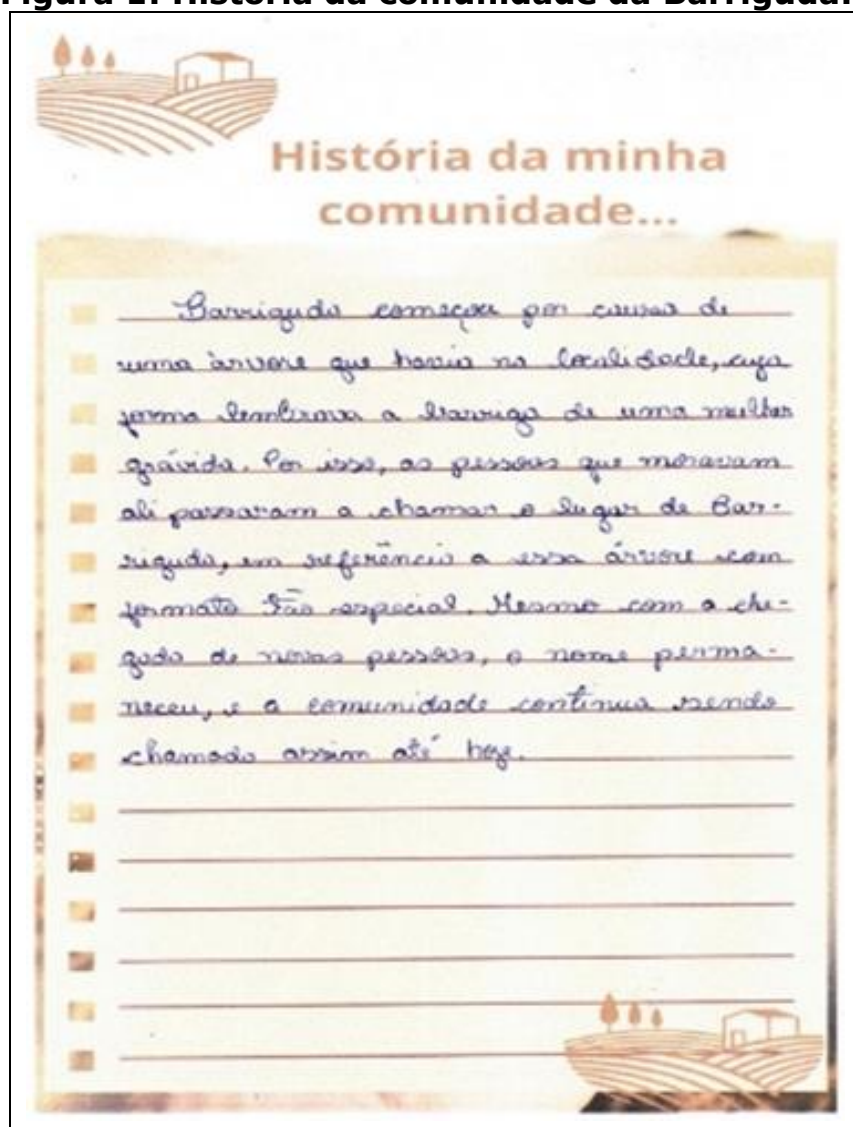 Figura 1: História da comunidade da Barriguda.
História da minha
comunidade...
Barriguda começou por causa de
uma árvore que havia na localidade, cuja
forma lembrava a barriga de uma mulher
grávida. Por isso, as pessoas que moravam
ali passaram a chamar o lugar de Bar-
riguda, em referência a essa árvore com
formato tão especial. Mesmo com a che-
gada de novas pessoas, o nome perma-
neceu, e a comunidade continua sendo
chamada assim até hoje.